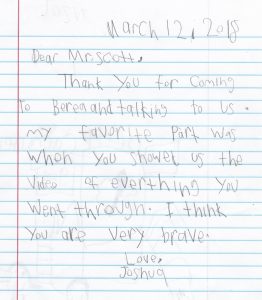 March 12, 2018
Dear Mr. scott,
Thank You for Coming
To Berea and talking to us.
my favorite Part was
When you showed us the
Video of everthing you
went through. I think
You are very brave.
Love,
Joshua